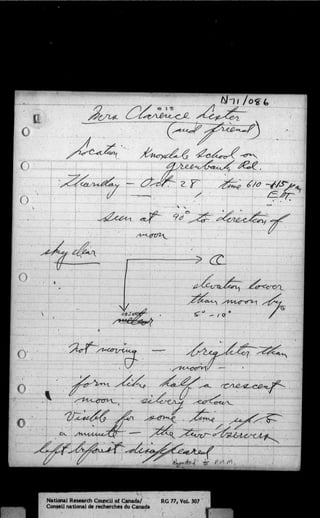 N71/086
Mrs Clarence Lester
(and friend)
Location Knoxdale School on
Greenbank Rd.
Thursday - Oct 28, time 610 - 615 p.m.
E.S.T.
seen at 90° to direction of
moon
sky clear
elevation lower
than moon by
5° - 10°
object
Not moving - brighter than
moon -
form like half a crescent
moon, silvery colour
Visible for some time, up to
a minute - the two observers
left before it disappeared
Reported to
National Research Council of Canada/
Conseil national de recherches du Canada
RG 77, Vol. 307